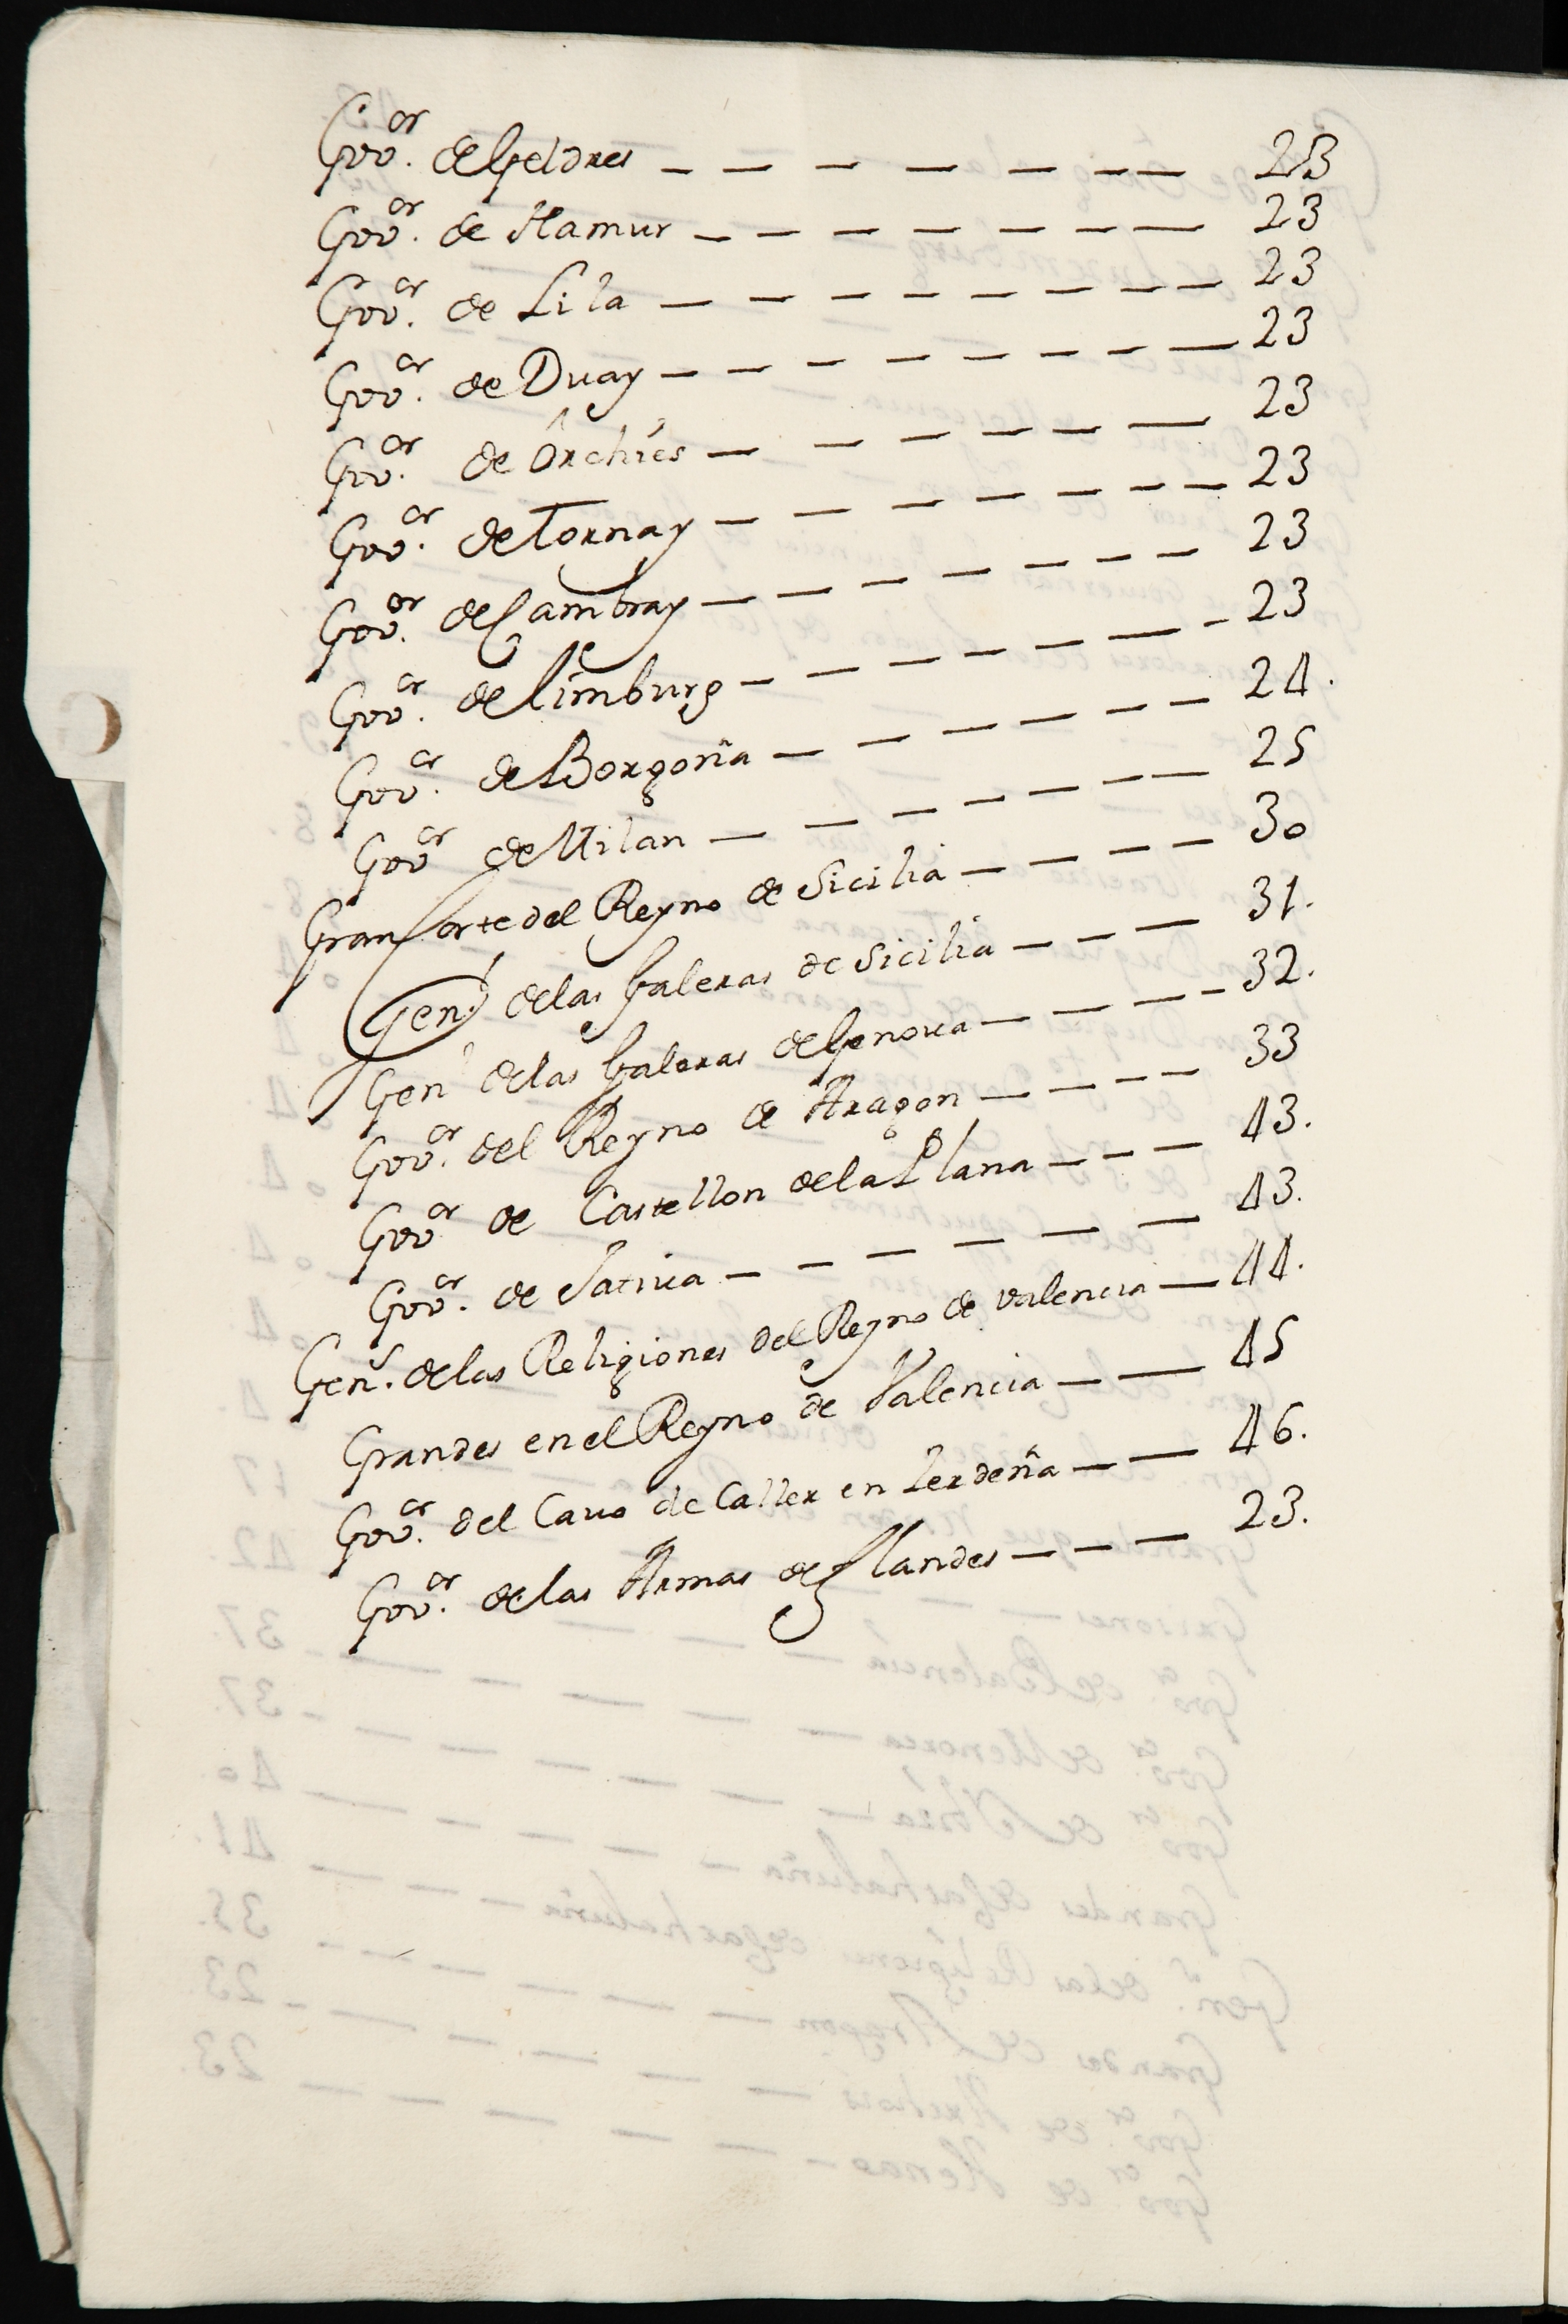 Gov.or de Geldres — — — — — — — 23
Gov.or de Namur — — — — — — — 23
Gov.or de Lila — — — — — — — — 23
Gov.or de Duay — — — — — — — — 23
Gov.or de Orchies — — — — — — 23
Gov.or de Tornay — — — — — — — 23
Gov.or de Cambray — — — — — — — 23
Gov.or de Limburg — — — — — — — 23
Gov.or de Borgoña — — — — — — 24.
Gov.or de Milan — — — — — — — 25
Gran Corte del Reyno de Sicilia — — — — 30
Gen.l de las Galeras de Sicilia — — — 31.
Gen.l de las Galeras de Genova — — — — 32.
Gov.or del Reyno de Aragon — — — — 33
Gov.or de Castellon de la Plana — — — 43.
Gov.or de Jativa — — — — — — 43.
Gen.s de las Religiones del Reyno de valencia — 44.
Grandes en el Reyno de Valencia — — 45
Gov.or del Cavo de Caller en Zerdeña — — 46.
Gov.or de las Armas de Flandes — — — 23.